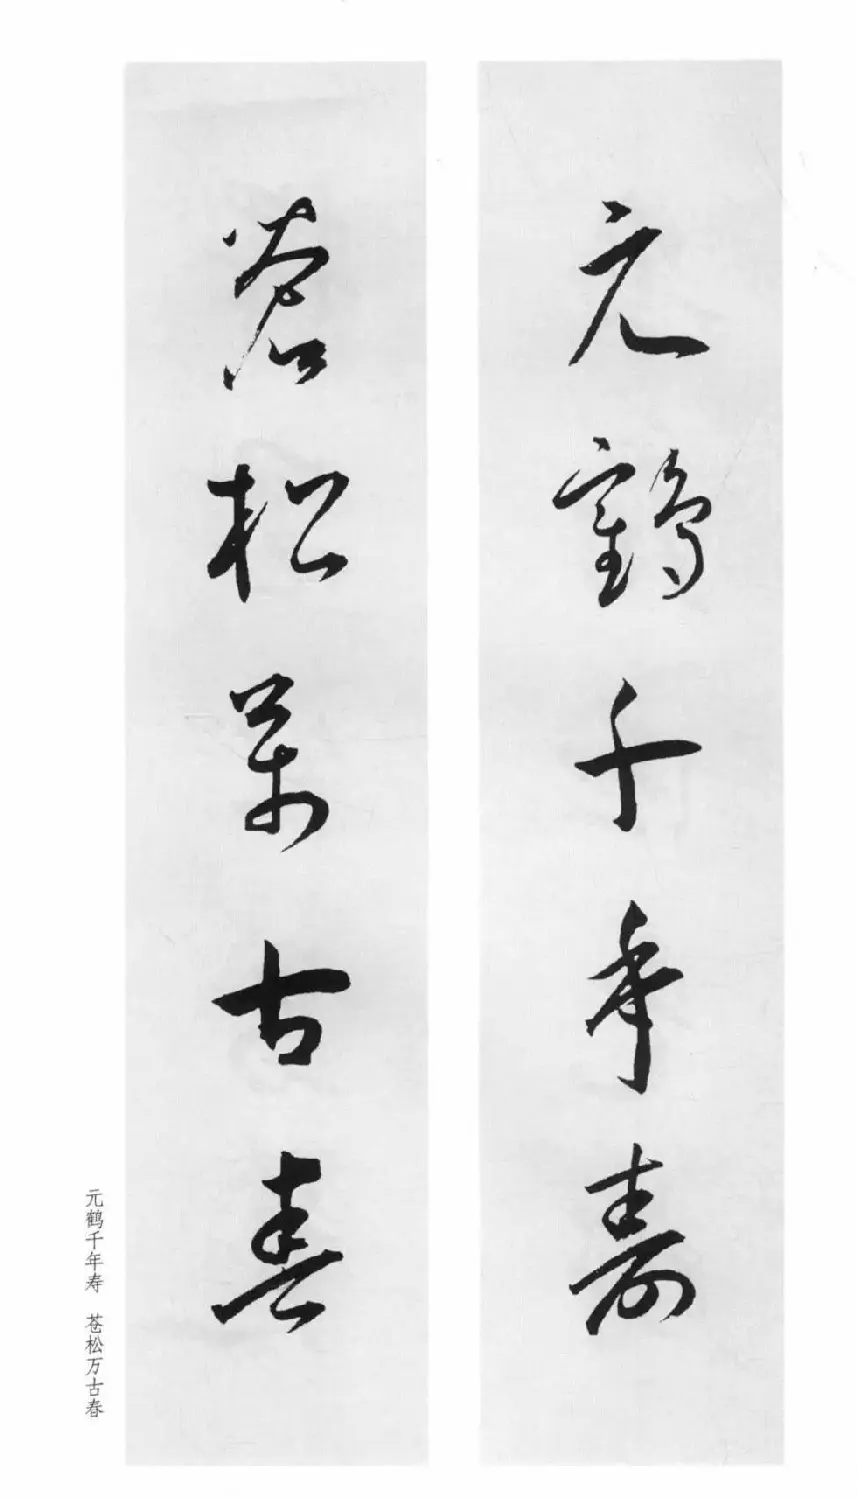 元鶴千年壽
蒼松萬古春
元鹤千年寿 苍松万古春